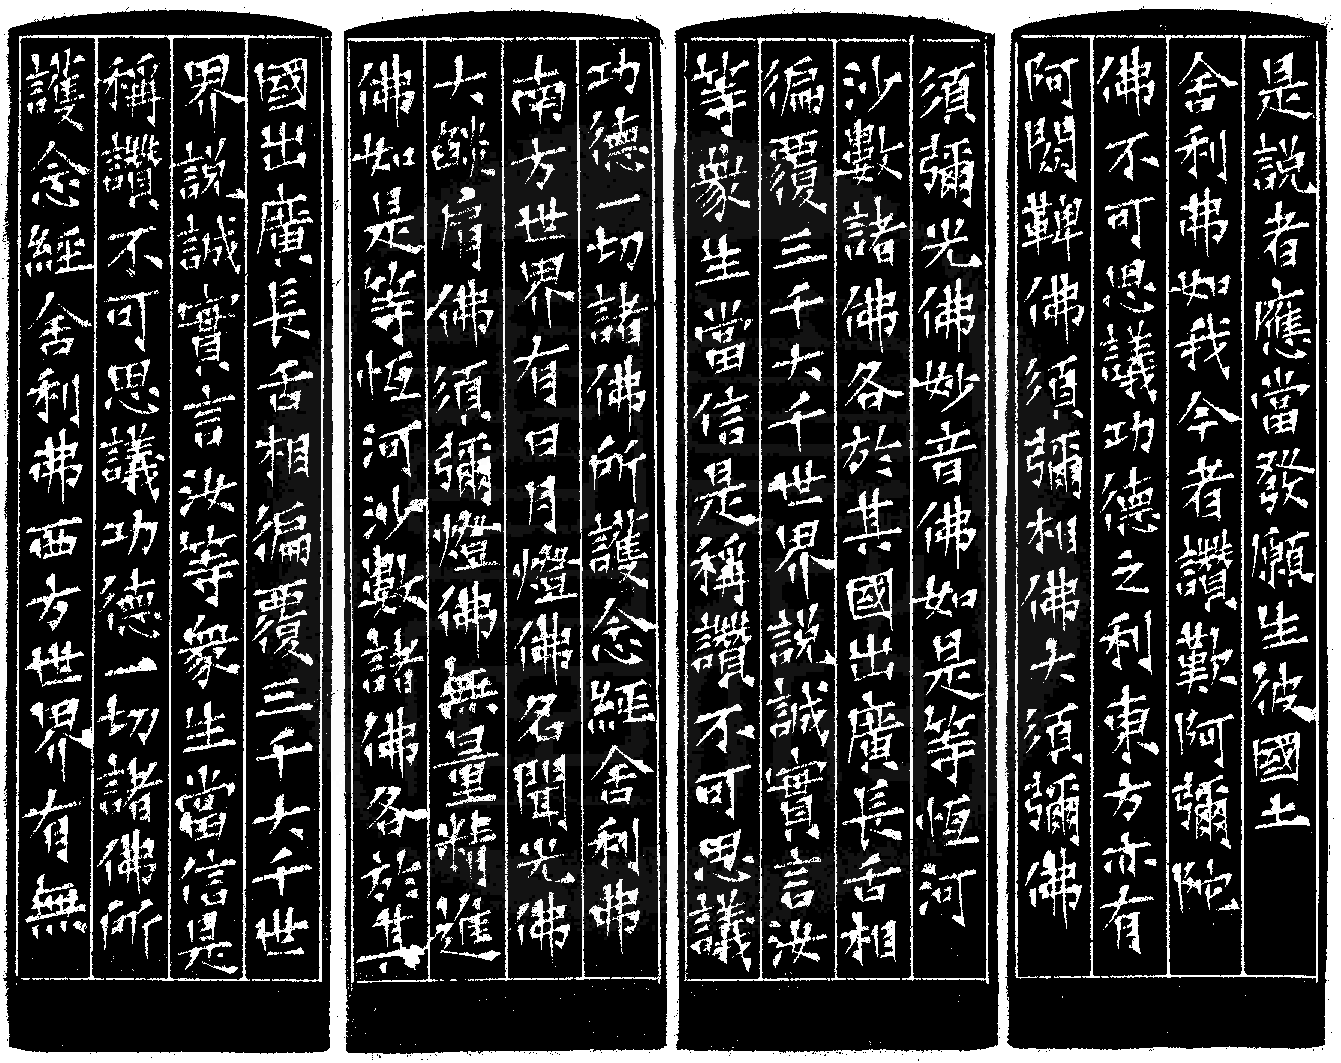 是説者應當發願生彼國土
舍利弗如我今者讚歎阿彌陀
佛不可思議功德之利東方亦有
阿閦鞞佛須彌相佛大須彌佛
須彌光佛妙音佛如是等恆河
沙數諸佛各於其國出廣長舌相
徧覆三千大千世界説誠實言汝
等衆生當信是稱讚不可思議
功德一切諸佛所護念經舍利弗
南方世界有日月燈佛名聞光佛
大燄肩佛須彌燈佛無量精進
佛如是等恆河沙數諸佛各於其
國出廣長舌相徧覆三千大千世
界説誠實言汝等衆生當信是
稱讚不可思議功德一切諸佛所
護念經舍利弗西方世界有無